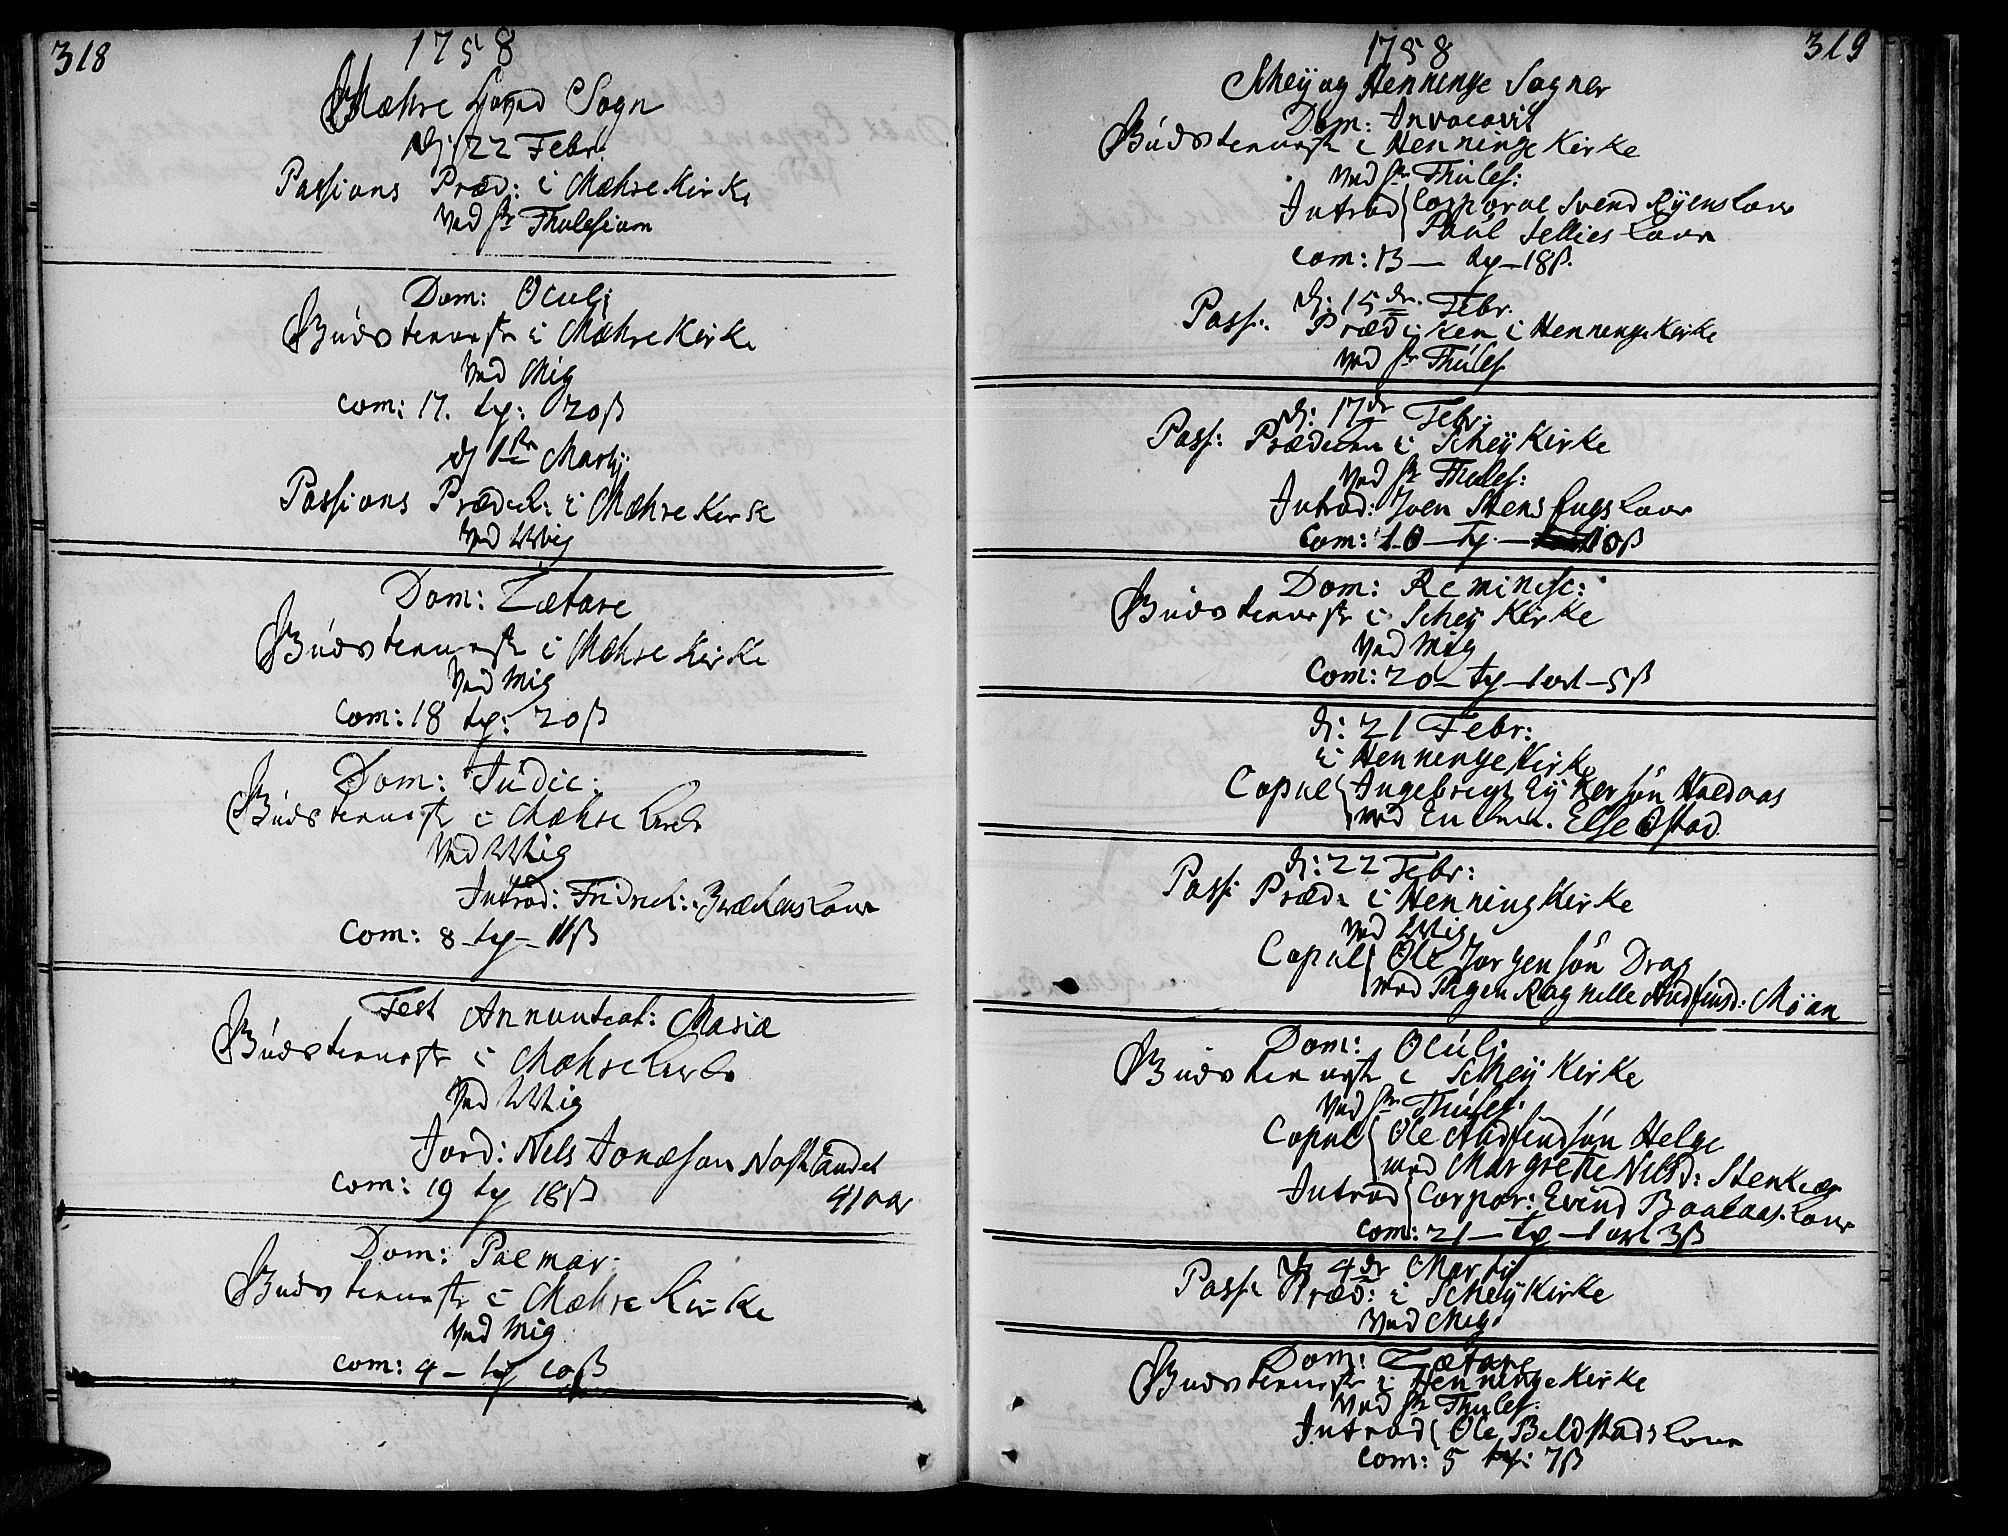 318
1758
Mæhre Hoved Sogn
d: 22 Febr.
Passions Præd: i Mæhre Kirke
ved Hr Thulesium
Dom: Oculj
Gudstienest i Mæhre Kirke
ved Mig
Com: 17. Tp: 20ß
d 1ste Martij
Passions Prædich: i Mæhre Kirke
ved Mig
Dom: Lætare
Gudstienest i Mæhre Kirke
ved Mig
Com: 18 Tp: 20ß
Dom: Judic:
Gudstienest i Mæhre Kirke
ved Mig
Introd: Fridrich: Kone
Com: 8 – Tp – 11ß
Fest Annunciat: Mariæ
Gudstienest i Mæhre Kirke
ved Mig
Jord: Nels Jonæsøn
41 aar
Com: 19 Tp 18ß
Dom: Palmar:
Gudstienest i Mæhre Kirke
ved Mig
Com: 4 – Tp 10ß
319
1758
Scheÿ og Henninge Sogner
Dom: Invocavit
Gudstienest i Henninge Kirke
ved Hr Thules:
Introd Corporal Svend Ryens Kone
Paul Sellies Kone
Com: 13 — Tp – 18ß.
d: 15de Febr.
Pass: Prædiken i Henninge Kirke
ved Hr Thules
d: 17de Febr:
Pass: Prædiken i Scheÿ Kirke
ved Hr Thules:
Introd: Iven Stensengs Kone
Com: 10 — Tp. — 10ß
Dom: Reminisc:
Gudstienest i Scheÿ Kirke
ved Mig
Com: 20 – Tp – 1 ort – 5ß
d: 21 Febr:
i Henninge Kirke
Copul Ingebrigt Eykersøn Haldaas
med Enchen. Else Østad
d: 22 Febr:
Pass: Præd: i Henning Kirke
ved Mig
Copul Ole Jorgensøn Drag
med Pigen Ragnille Audfinsd: Møan
Dom: Oculj
Gudstienest i Scheÿ Kirke
ved Hr Thules:
Copul Ole Audfindsøn Helge
med Margrethe Nilsd:
Introd Corpor: Evind Kone
Com: 21 — Tp – 1 ort 3ß
d 4de Martij
Pass: Præd: i Scheÿ Kirke
ved Mig
Dom: Lætare
Gudstienest i Henninge Kirke
ved Hr Thules:
Introd Ole Beldstads Kone
Com: 5 Tp: 7ß